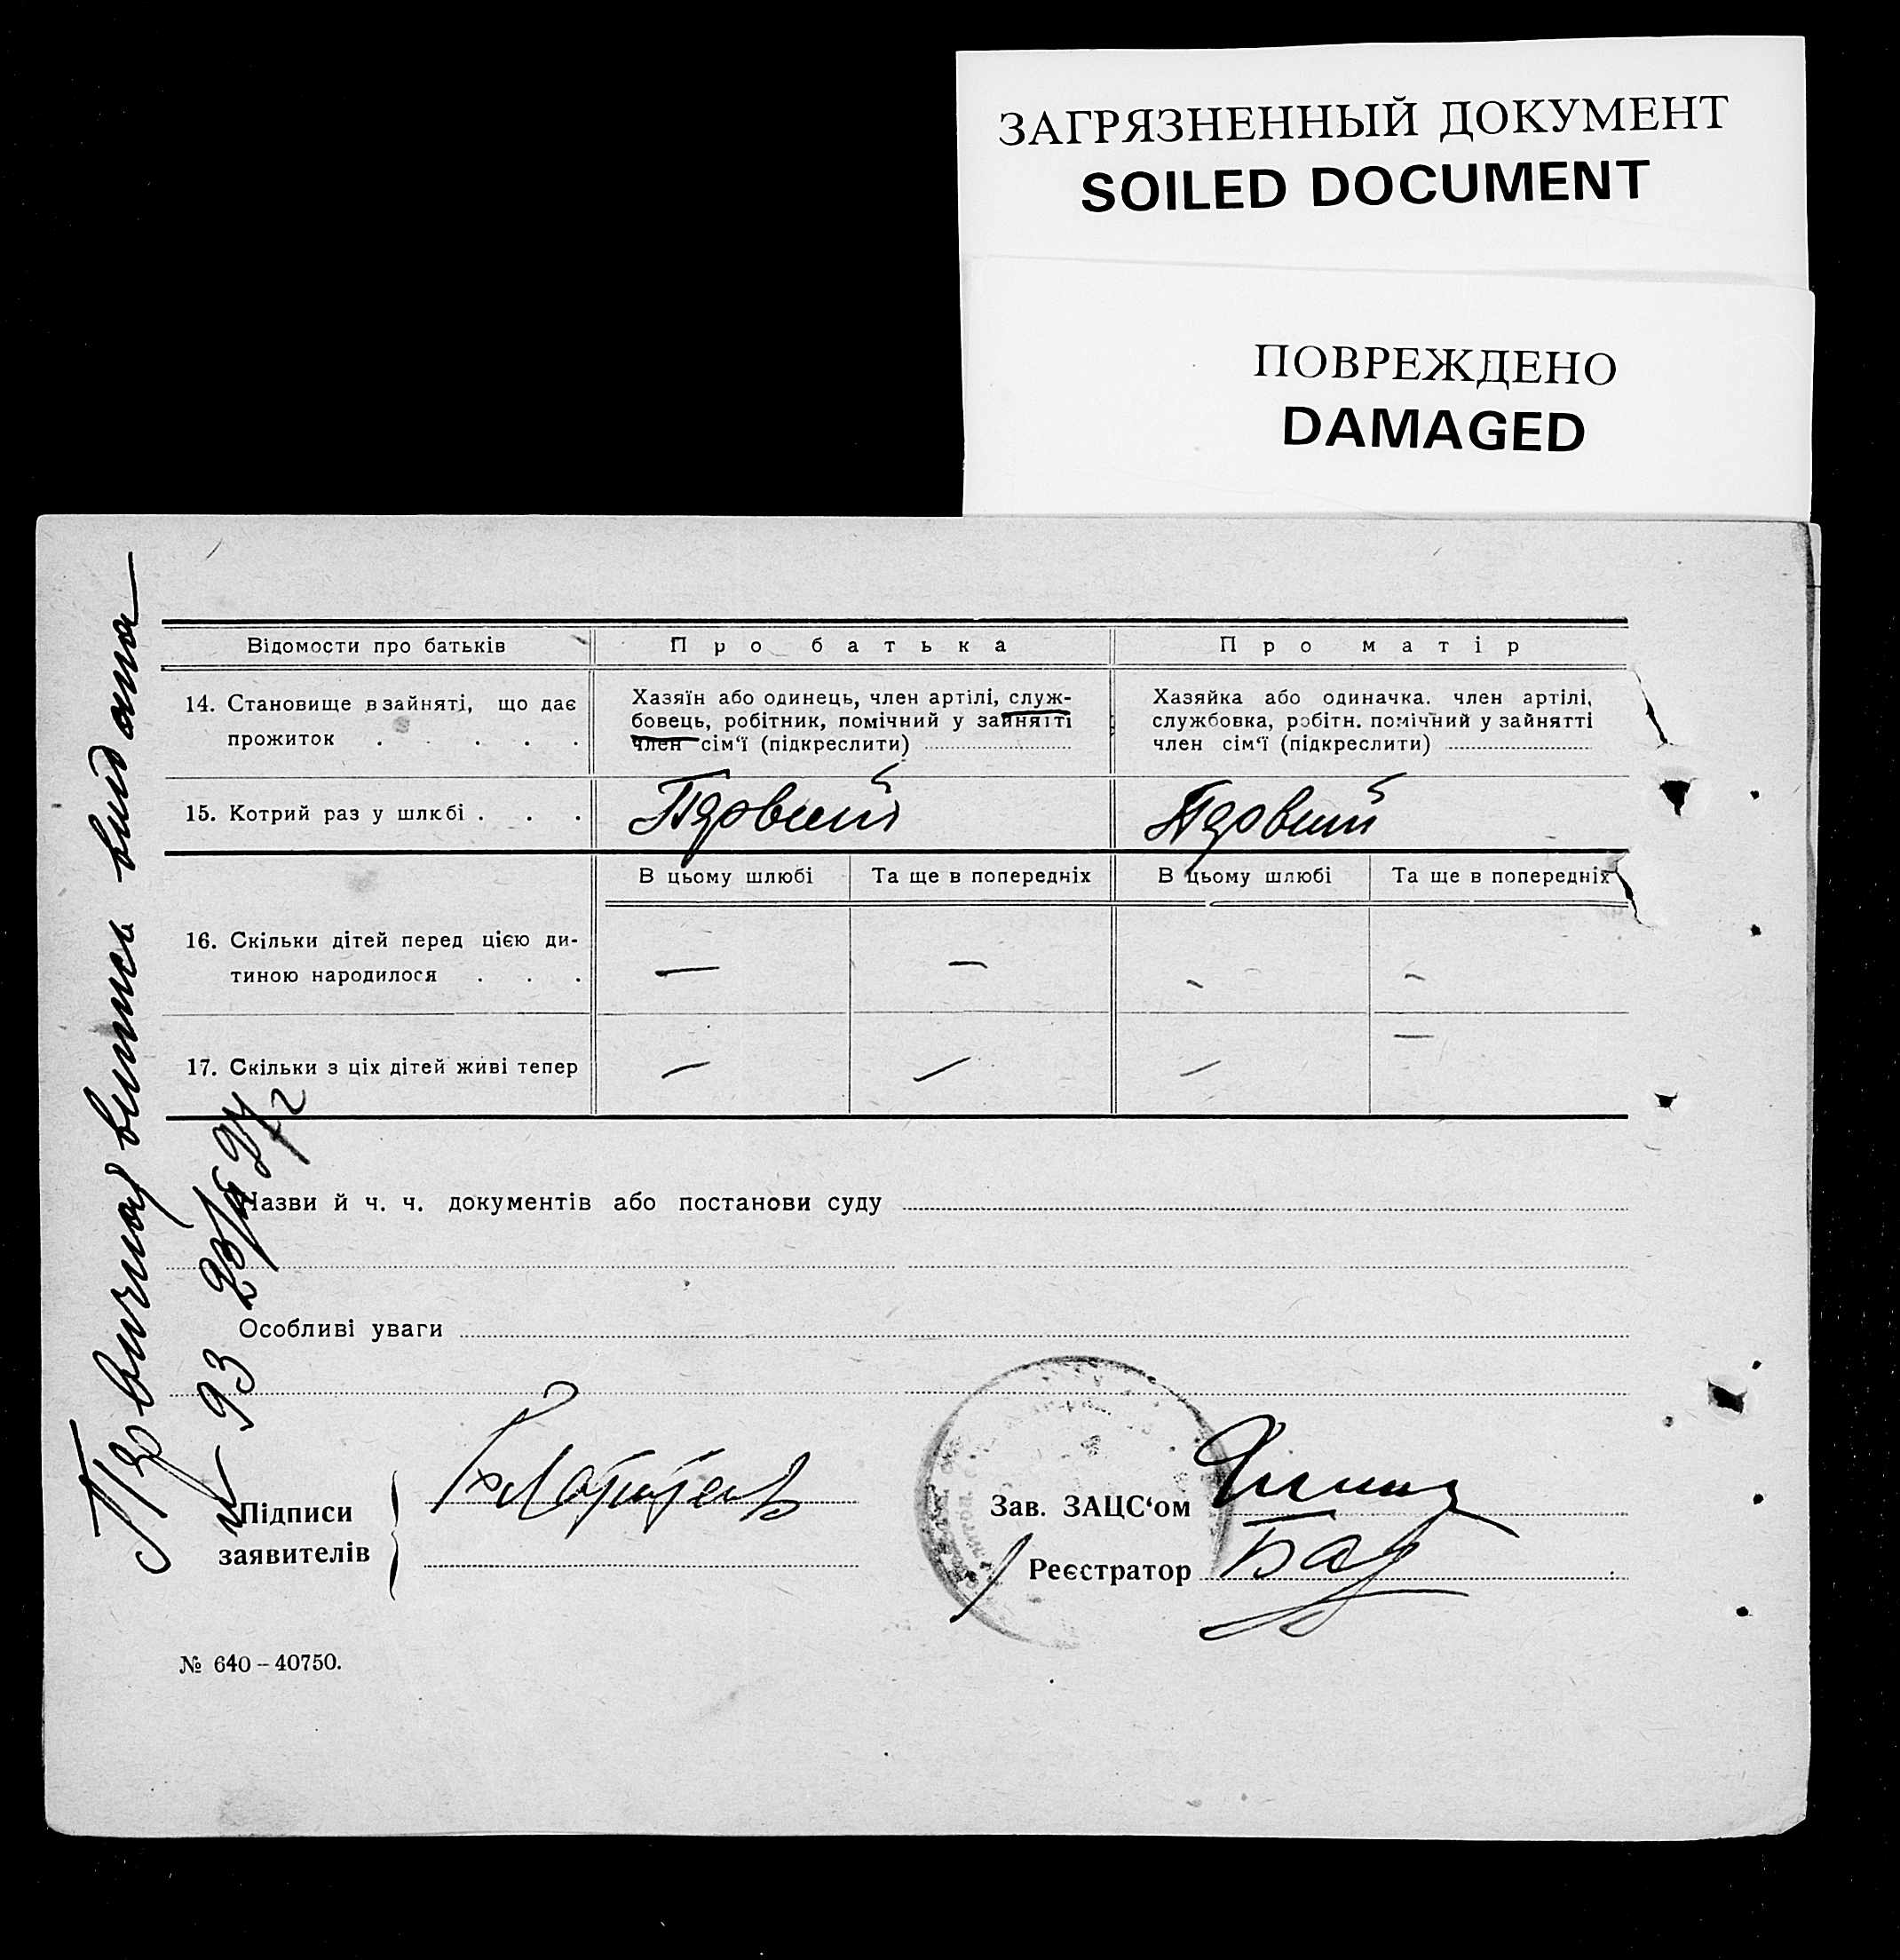 ЗАГРЯЗНЕННЫЙ ДОКУМЕНТ
SOILED DOCUMENT
ПОВРЕЖДЕНО
DAMAGED
Відомости про батьків Про батька Про матір
14. Становище в зайняті, що дає
прожиток . . . . .
Хазяїн або одинець, член артілі, служ-
бовець, робітник, помічний у зайняіті
член сім‘ї (підкреслити)
Хазяйка або одиначка. член артілі,
службовка, робітн. помічний у зайнятті
член сім‘ї (підкреслити)
15. Котрий раз у шлюбі . . . Первший Первший
В цьому шлюбі Та ще в попередніх В цьому шлюбі Та ще в попередніх
16. Скільки дітей перед цією ди-
тиною народилося . . . — — - -
17. Скільки з ціх дітей живі тепер — — — —
Назви й ч. ч. документів або постанови суду
Особливі уваги
Підписи
заявителів
Зав. ЗАЦС‘ом
Реєстратор Бар
№ 640–40750.
Первичная выпись видана
№ 93